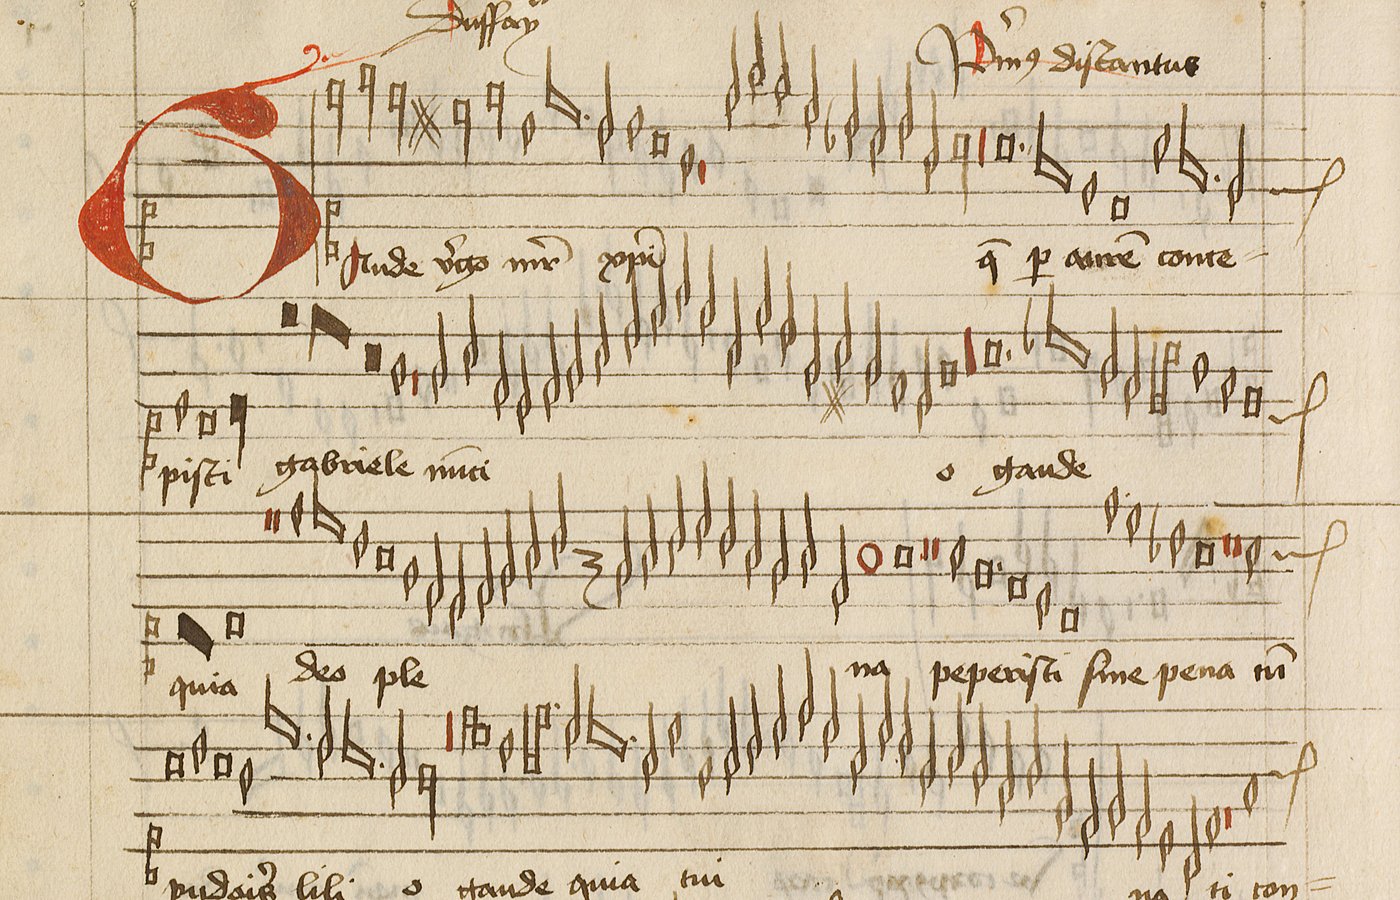 Duffay
Prim9 discantus
Gaude v̉go mr̄ xp̄i q̄ p aurē conce-
pisti gabriele nūci o gaude
quia deo ple na peperisti sine pena cū
pudoris lili o gaude quia tui na ti con=